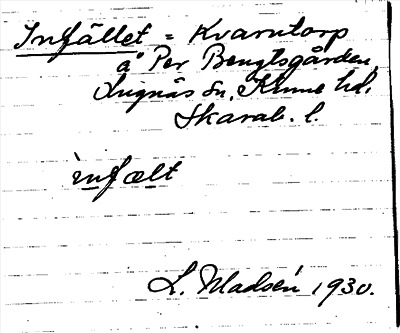 Infället = Kvarntorp
å Per Bengtsgården,
Lugnås sn, Kinne hd,
Skarab. l.
ìnfælt
L. Madsén 1930.